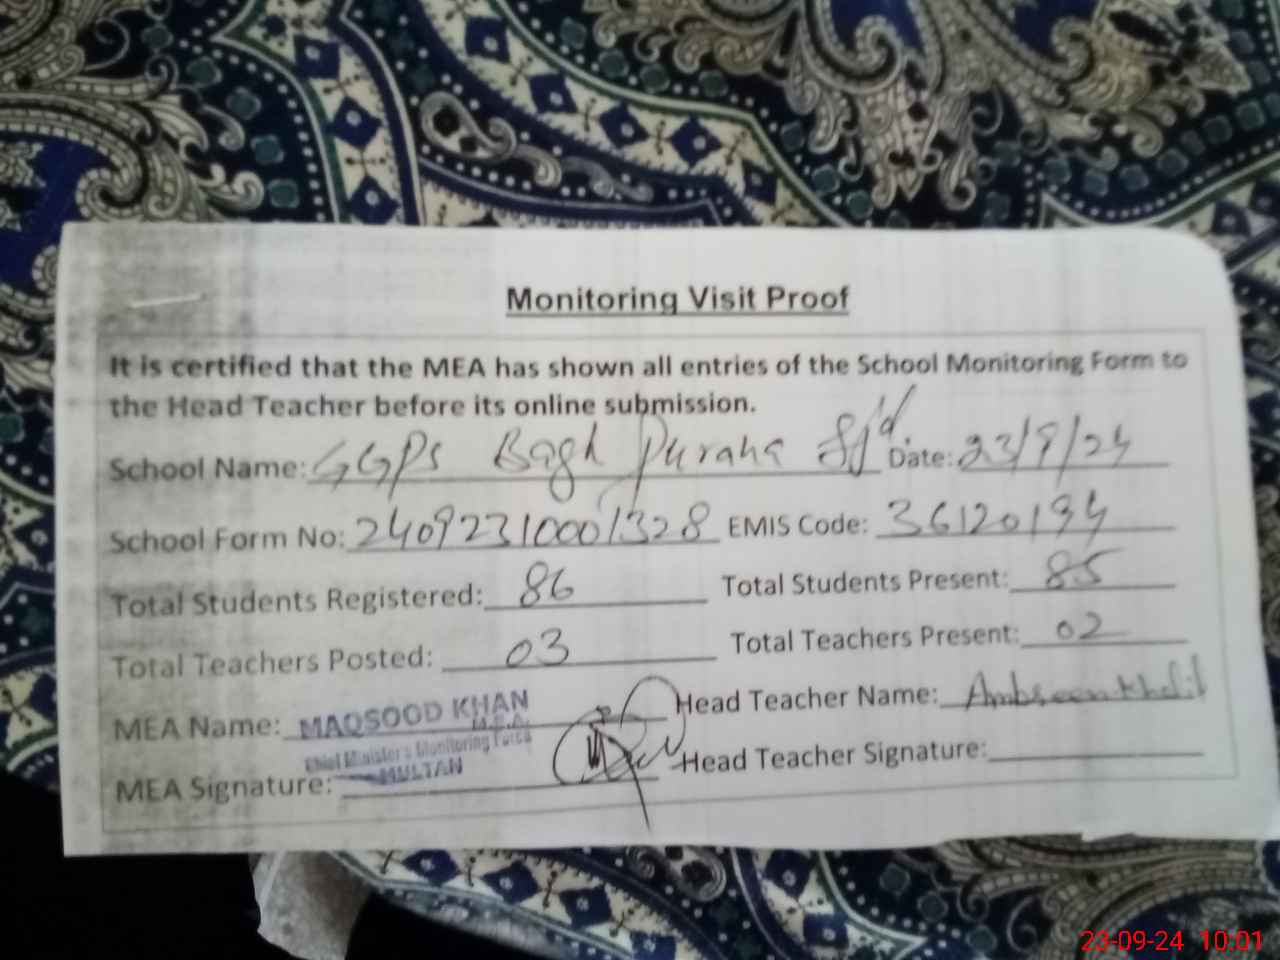 Monitoring Visit Proof
It is certified that the MEA has shown all entries of the School Monitoring Form to
the Head Teacher before its online submission.
School Name: GGPS Bagh Purana Sj'd Date: 23/9/24
School Form No: 24092310001328 EMIS Code: 36120194
Total Students Registered: 86 Total Students Present: 85
Total Teachers Posted: 03 Total Teachers Present: 02
MEA Name: MAQSOOD KHAN Head Teacher Name: Ambreen Khalil
M.E.A.
Chief Minister's Monitoring Force
MEA Signature: MULTAN Head Teacher Signature:
23-09-24 10:01